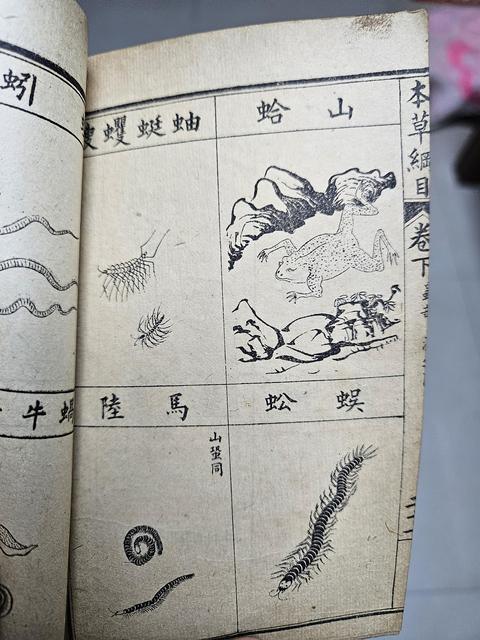 本草綱目 卷下
山蛤
蚰蜓蠼螋
蜈蚣
馬陸
山蛩同
蚓
蝸牛